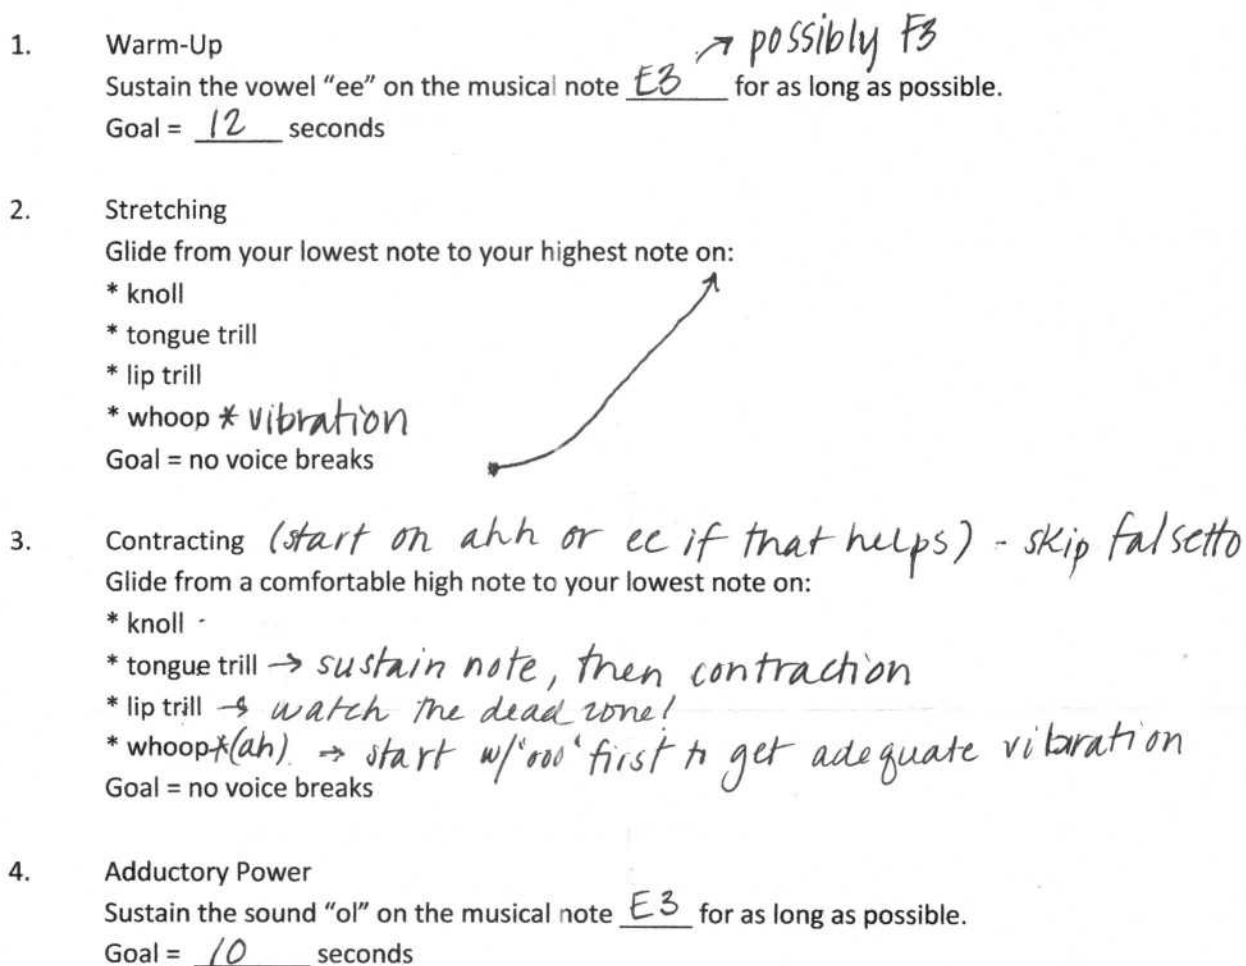 → possibly F3
1. Warm-Up
Sustain the vowel “ee” on the musical note E3 for as long as possible.
Goal = 12 seconds
2. Stretching
Glide from your lowest note to your highest note on:
* knoll
* tongue trill
* lip trill
* whoop * vibration
Goal = no voice breaks
3. Contracting (start on ahh or ee if that helps) - skip falsetto
Glide from a comfortable high note to your lowest note on:
* knoll -
* tongue trill → sustain note, then contraction
* lip trill → watch the dead zone!
* whoop*(ah) → start w/‘ooo‘ first to get adequate vibration
Goal = no voice breaks
4. Adductory Power
Sustain the sound “ol” on the musical note E3 for as long as possible.
Goal = 10 seconds